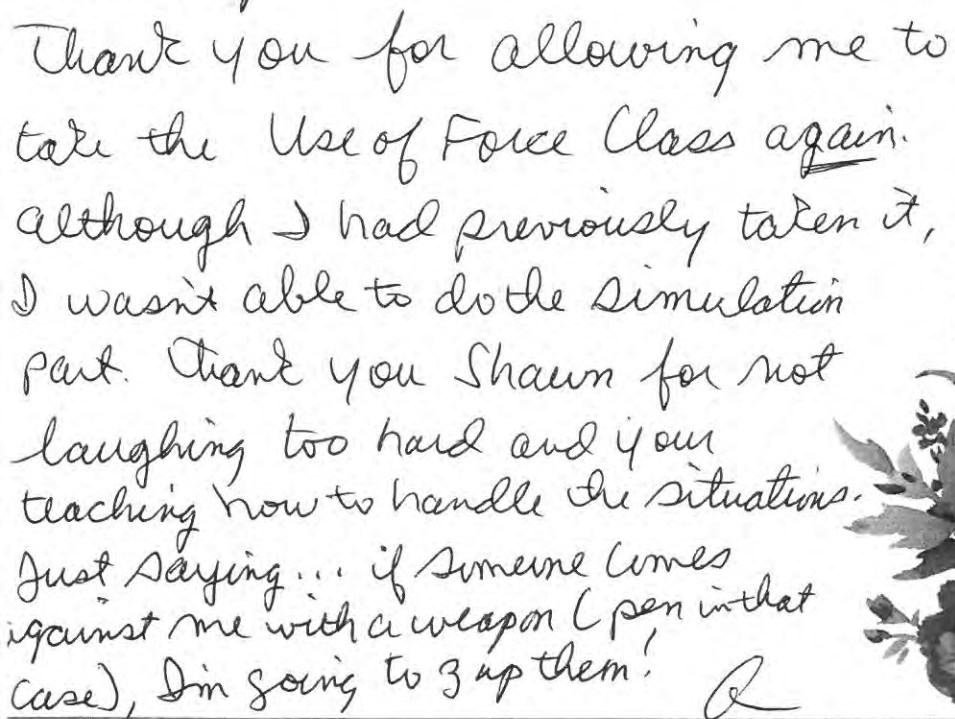 Thank you for allowing me to
take the Use of Force Class again.
Although I had previously taken it,
I wasn't able to do the simulation
part. Thank you Shawn for not
laughing too hard and your
teaching how to handle the situations.
Just saying... if someone comes
against me with a weapon (pen in that
case), I'm going to zap them!